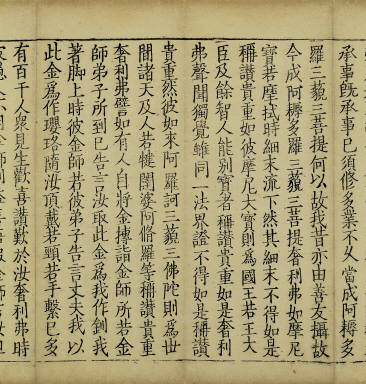 承事旣承事已須修多業不久當成阿耨多
羅三藐三菩提何以故我昔亦由善友攝故
今成阿耨多羅三藐三菩提奢利弗如摩尼
寶若摩拭時細末流下然其細末不得如是
稱讚貴重如彼摩尼大寶則爲國王若王大
臣及餘智人能別寶者稱讚貴重如是奢利
弗聲聞獨覺雖同一法界證不得如是稱讚
貴重然彼如來阿羅訶三藐三佛陀則爲世
間諸天及人若揵闥婆阿脩羅等稱讚貴重
奢利弗譬如有人自將金摶詣金師所若金
師弟子所到已告言汝取此金爲我作釧我
著脚上時彼金師若彼弟子告言丈夫我以
此金爲作瓔珞隨汝頂戴若頸若手繫已多
有百千人衆見生歡喜讚歎於汝奢利弗時